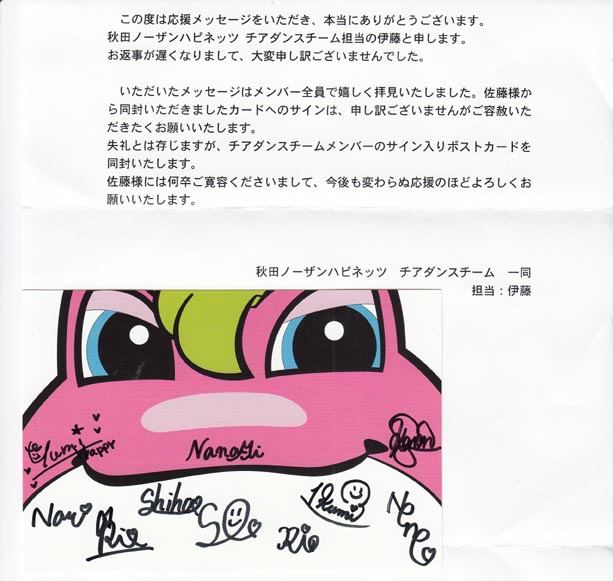 この度は応援メッセージをいただき、本当にありがとうございます。
秋田ノーザンハピネッツ チアダンスチーム担当の伊藤と申します。
お返事が遅くなりまして、大変申し訳ございませんでした。
いただいたメッセージはメンバー全員で嬉しく拝見いたしました。佐藤様か
ら同封いただきましたカードへのサインは、申し訳ございませんがご容赦いた
だきたくお願いいたします。
失礼とは存じますが、チアダンスチームメンバーのサイン入りポストカードを
同封いたします。
佐藤様には何卒ご寛容くださいまして、今後も変わらぬ応援のほどよろしくお
願いいたします。
秋田ノーザンハピネッツ　チアダンスチーム　一同
担当：伊藤
Yumi
Happy
Shihoe
Nari
Rie
Rio
Nene